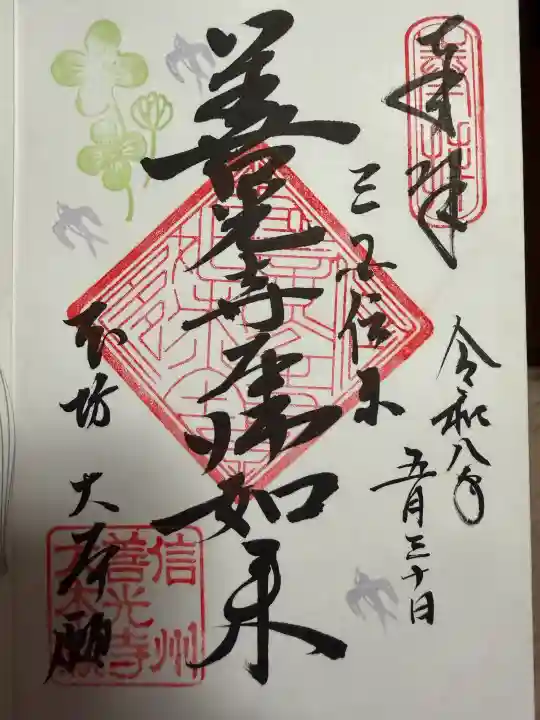 奉拝
令和八年
五月三十日
三国伝来
善光寺如来
本坊 大本願
信州
善光寺
大本願